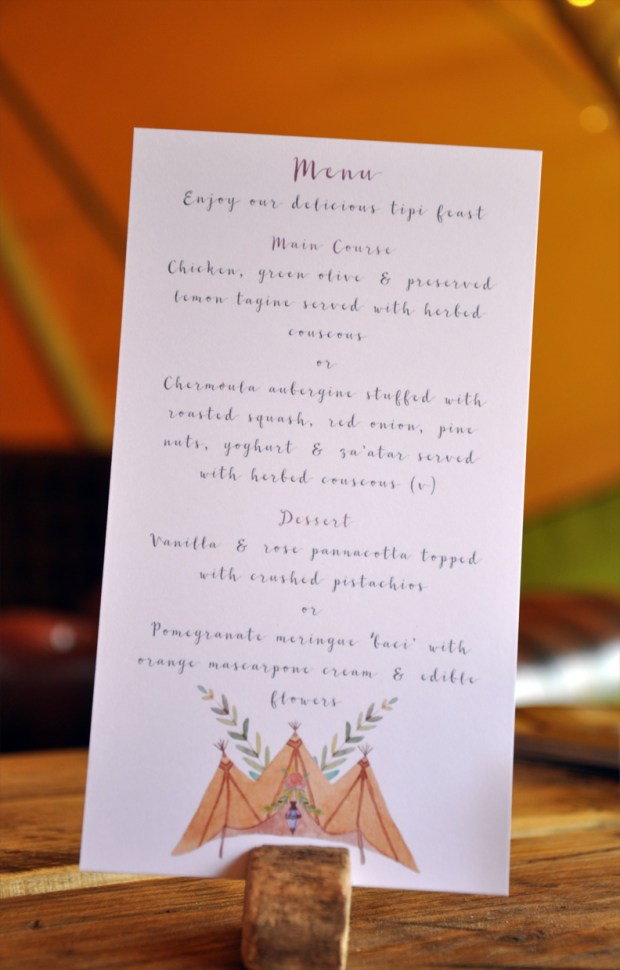 Menu
Enjoy our delicious tipi feast
Main Course
Chicken, green olive & preserved
lemon tagine served with herbed
couscous
or
Chermoula aubergine stuffed with
roasted squash, red onion, pine
nuts, yoghurt & za'atar served
with herbed couscous (v)
Dessert
Vanilla & rose pannacotta topped
with crushed pistachios
or
Pomegranate meringue 'baci' with
orange mascarpone cream & edible
flowers